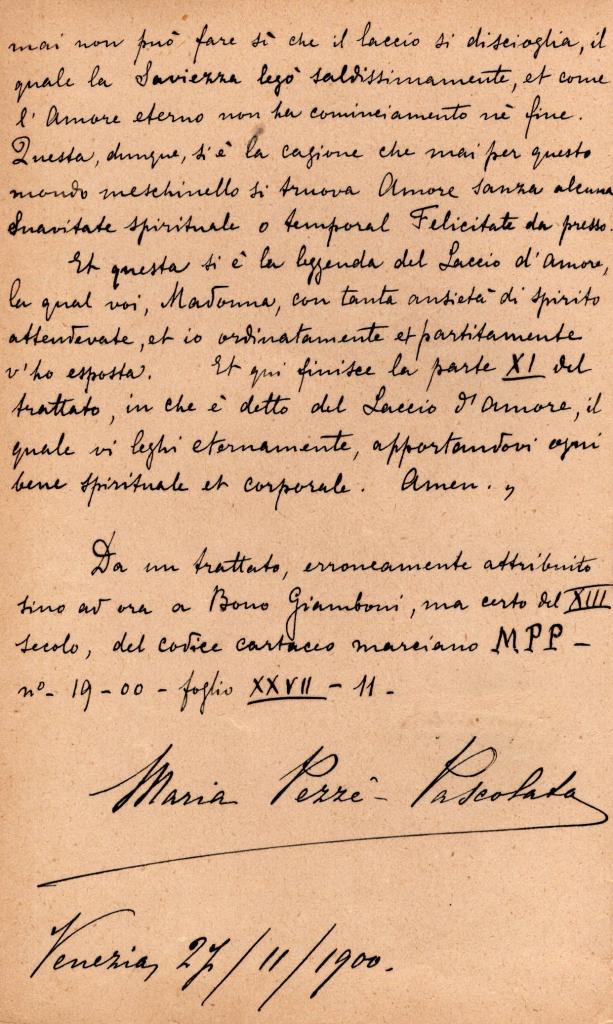 mai non può fare sì che il laccio si discioglia, il
quale la Saviezza legò saldissimamente, et come
l'Amore eterno non ha cominciamento nè fine.
Questa, dunque, si è la cagione che mai per questo
mondo meschinello si truova Amore sanza alcuna
Suavitate spirituale o temporal Felicitate da presso.
Et questa si è la leggenda del Laccio d'Amore,
la qual voi, Madonna, con tanta ansietà di spirito
attendevate, et io ordinatamente et partitamente
v'ho esposta. Et qui finisce la parte XI del
trattato, in che è detto del Laccio d'Amore, il
quale vi leghi eternamente, apportandovi ogni
bene spirituale et corporale. Amen. „
Da un trattato, erroneamente attribuito
sino ad ora a Bono Giamboni, ma certo del XIII
secolo, del codice cartaceo marciano MPP -
nº- 19-00 - foglio XXVII - 11 -
Maria Pezzè - Pascolato
Venezia, 27/11/1900.